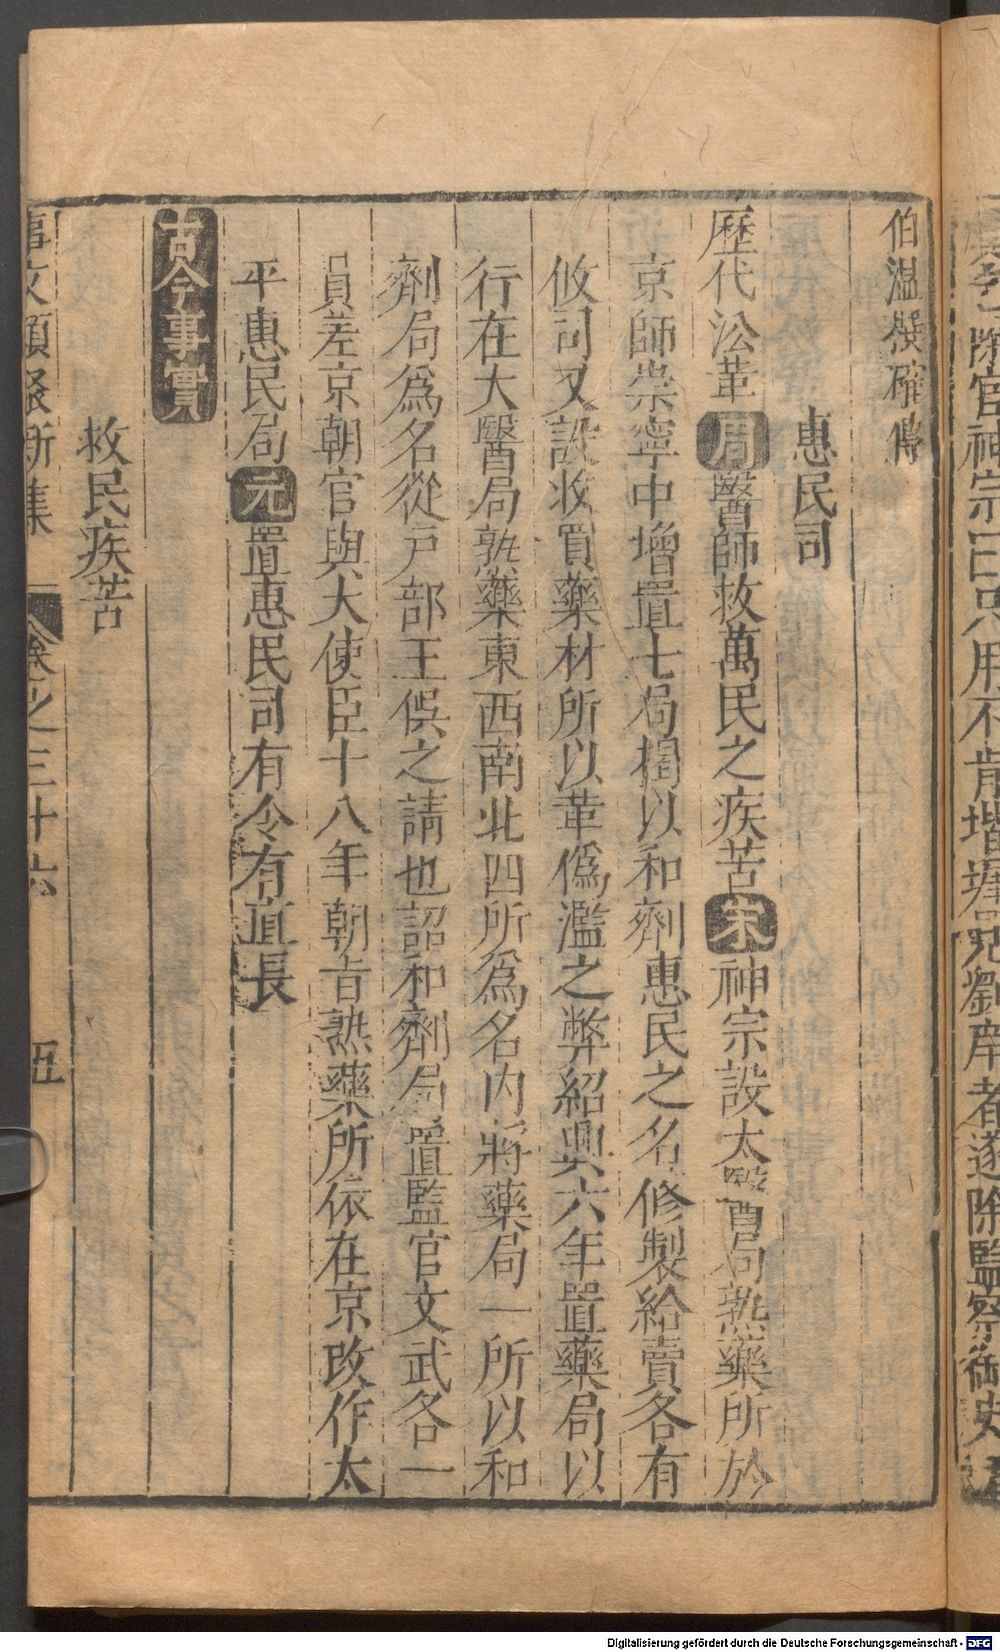 宗口只用不肯堦墀兄劉庠者遂除監察御史
伯温
惠民司
歷代㳂革 周 醫師救萬民之疾苦 宋 神宗設太醫局熟藥所於
京師崇寧中增置七局揭以和劑惠民之名修製給賣各有
攸司又設收買藥材所以革偽濫之弊紹興六年置藥局以
行在大醫局熟藥東西南北四所爲名内將藥局一所以和
劑局爲名從戸部王俁之請也詔和劑局置監官文武各一
員差京朝官與大使臣十八年朝旨熟藥所依在京改作太
平惠民局 元 置惠民司有令有直長
古今事實
救民疾苦
事文類聚新集 卷之三十六 五
Digitalisierung gefördert durch die Deutsche Forschungsgemeinschaft - DFG